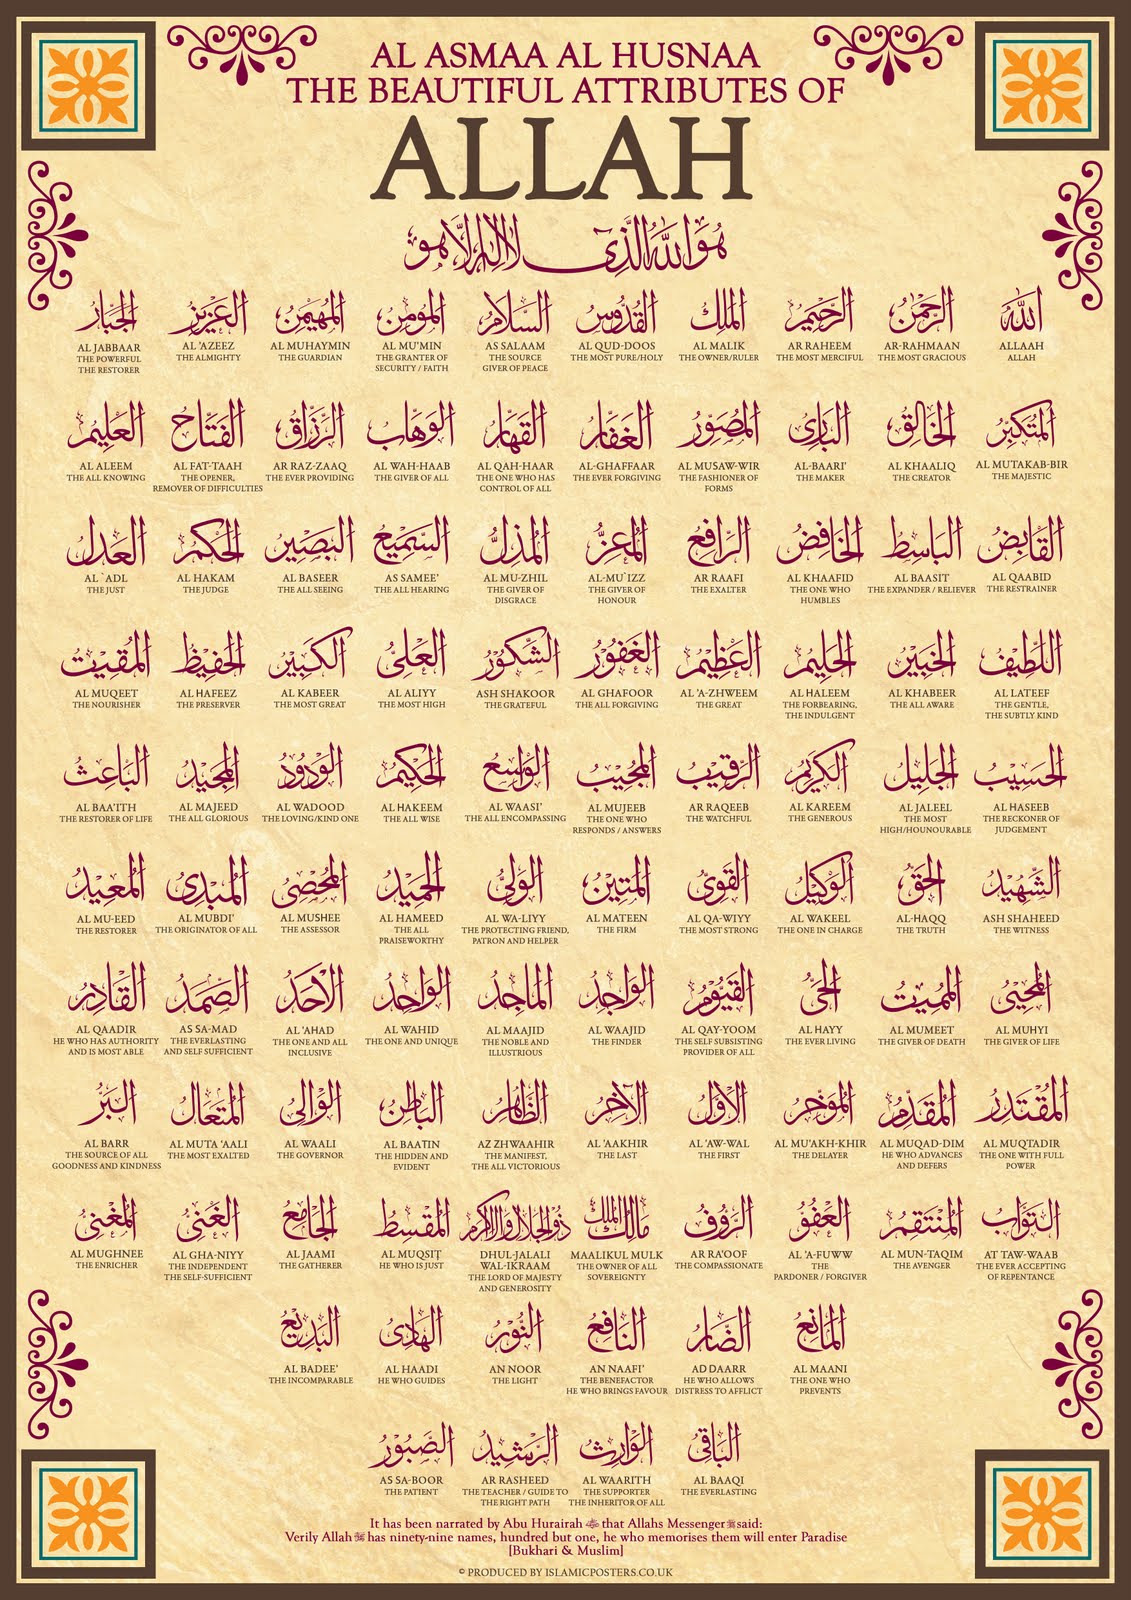 AL ASMAA AL HUSNAA
THE BEAUTIFUL ATTRIBUTES OF
ALLAH
هو الله الذي لا إله إلا هو
الله
ALLAAH
ALLAH
الرحمن
AR-RAHMAAN
THE MOST GRACIOUS
الرحيم
AR RAHEEM
THE MOST MERCIFUL
الملك
AL MALIK
THE OWNER/RULER
القدوس
AL QUD-DOOS
THE MOST PURE/HOLY
السلام
AS SALAAM
THE SOURCE
GIVER OF PEACE
المؤمن
AL MU'MIN
THE GRANTER OF
SECURITY / FAITH
المهيمن
AL MUHAYMIN
THE GUARDIAN
العزيز
AL 'AZEEZ
THE ALMIGHTY
الجبار
AL JABBAAR
THE POWERFUL
THE RESTORER
المتكبر
AL MUTAKAB-BIR
THE MAJESTIC
الخالق
AL KHAALIQ
THE CREATOR
البارئ
AL-BAARI'
THE MAKER
المصور
AL MUSAW-WIR
THE FASHIONER OF
FORMS
الغفار
AL-GHAFFAAR
THE EVER FORGIVING
القهار
AL QAH-HAAR
THE ONE WHO HAS
CONTROL OF ALL
الوهاب
AL WAH-HAAB
THE GIVER OF ALL
الرزاق
AR RAZ-ZAAQ
THE EVER PROVIDING
الفتاح
AL FAT-TAAH
THE OPENER,
REMOVER OF DIFFICULTIES
العليم
AL ALEEM
THE ALL KNOWING
القابض
AL QAABID
THE RESTRAINER
الباسط
AL BAASIT
THE EXPANDER / RELIEVER
الخافض
AL KHAAFID
THE ONE WHO
HUMBLES
الرافع
AR RAAFI
THE EXALTER
المعز
AL-MU`IZZ
THE GIVER OF
HONOUR
المذل
AL MU-ZHIL
THE GIVER OF
DISGRACE
السميع
AS SAMEE'
THE ALL HEARING
البصير
AL BASEER
THE ALL SEEING
الحكم
AL HAKAM
THE JUDGE
العدل
AL `ADL
THE JUST
اللطيف
AL LATEEF
THE GENTLE,
THE SUBTLY KIND
الخبير
AL KHABEER
THE ALL AWARE
الحليم
AL HALEEM
THE FORBEARING,
THE INDULGENT
العظيم
AL 'A-ZHWEEM
THE GREAT
الغفور
AL GHAFOOR
THE ALL FORGIVING
الشكور
ASH SHAKOOR
THE GRATEFUL
العلي
AL ALIYY
THE MOST HIGH
الكبير
AL KABEER
THE MOST GREAT
الحفيظ
AL HAFEEZ
THE PRESERVER
المقيت
AL MUQEET
THE NOURISHER
الحسيب
AL HASEEB
THE RECKONER OF
JUDGEMENT
الجليل
AL JALEEL
THE MOST
HIGH/HOUNOURABLE
الكريم
AL KAREEM
THE GENEROUS
الرقيب
AR RAQEEB
THE WATCHFUL
المجيب
AL MUJEEB
THE ONE WHO
RESPONDS / ANSWERS
الواسع
AL WAASI'
THE ALL ENCOMPASSING
الحكيم
AL HAKEEM
THE ALL WISE
الودود
AL WADOOD
THE LOVING/KIND ONE
المجيد
AL MAJEED
THE ALL GLORIOUS
الباعث
AL BAA'ITH
THE RESTORER OF LIFE
الشهيد
ASH SHAHEED
THE WITNESS
الحق
AL-HAQQ
THE TRUTH
الوكيل
AL WAKEEL
THE ONE IN CHARGE
القوي
AL QA-WIYY
THE MOST STRONG
المتين
AL MATEEN
THE FIRM
الولي
AL WA-LIYY
THE PROTECTING FRIEND,
PATRON AND HELPER
الحميد
AL HAMEED
THE ALL
PRAISEWORTHY
المحصي
AL MUSHEE
THE ASSESSOR
المبدئ
AL MUBDI'
THE ORIGINATOR OF ALL
المعيد
AL MU-EED
THE RESTORER
المحيي
AL MUHYI
THE GIVER OF LIFE
المميت
AL MUMEET
THE GIVER OF DEATH
الحي
AL HAYY
THE EVER LIVING
القيوم
AL QAY-YOOM
THE SELF SUBSISTING
PROVIDER OF ALL
الواجد
AL WAAJID
THE FINDER
الماجد
AL MAAJID
THE NOBLE AND
ILLUSTRIOUS
الواحد
AL WAHID
THE ONE AND UNIQUE
الاحد
AL 'AHAD
THE ONE AND ALL
INCLUSIVE
الصمد
AS SA-MAD
THE EVERLASTING
AND SELF SUFFICIENT
القادر
AL QAADIR
HE WHO HAS AUTHORITY
AND IS MOST ABLE
المقتدر
AL MUQTADIR
THE ONE WITH FULL
POWER
المقدم
AL MUQAD-DIM
HE WHO ADVANCES
AND DEFERS
المؤخر
AL MU'AKH-KHIR
THE DELAYER
الأول
AL 'AW-WAL
THE FIRST
الآخر
AL 'AAKHIR
THE LAST
الظاهر
AZ ZHWAAHIR
THE MANIFEST,
THE ALL VICTORIOUS
الباطن
AL BAATIN
THE HIDDEN AND
EVIDENT
الوالي
AL WAALI
THE GOVERNOR
المتعال
AL MUTA 'AALI
THE MOST EXALTED
البر
AL BARR
THE SOURCE OF ALL
GOODNESS AND KINDNESS
التواب
AT TAW-WAAB
THE EVER ACCEPTING
OF REPENTANCE
المنتقم
AL MUN-TAQIM
THE AVENGER
العفو
AL 'A-FUWW
THE
PARDONER / FORGIVER
الرؤوف
AR RA'OOF
THE COMPASSIONATE
مالك الملك
MAALIKUL MULK
THE OWNER OF ALL
SOVEREIGNTY
ذو الجلال والإكرام
DHUL-JALALI
WAL-IKRAAM
THE LORD OF MAJESTY
AND GENEROSITY
المقسط
AL MUQSIT
HE WHO IS JUST
الجامع
AL JAAMI
THE GATHERER
الغني
AL GHA-NIYY
THE INDEPENDENT
THE SELF-SUFFICIENT
المغني
AL MUGHNEE
THE ENRICHER
المانع
AL MAANI
THE ONE WHO
PREVENTS
الضار
AD DAARR
HE WHO ALLOWS
DISTRESS TO AFFLICT
النافع
AN NAAFI'
THE BENEFACTOR
HE WHO BRINGS FAVOUR
النور
AN NOOR
THE LIGHT
الهادي
AL HAADI
HE WHO GUIDES
البديع
AL BADEE'
THE INCOMPARABLE
الباقي
AL BAAQI
THE EVERLASTING
الوارث
AL WAARITH
THE SUPPORTER
THE INHERITOR OF ALL
الرشيد
AR RASHEED
THE TEACHER / GUIDE TO
THE RIGHT PATH
الصبور
AS SA-BOOR
THE PATIENT
It has been narrated by Abu Hurairah that Allahs Messenger ﷺ said:
Verily Allah has ninety-nine names, hundred but one, he who memorises them will enter Paradise
[Bukhari & Muslim]
© PRODUCED BY ISLAMICPOSTERS.CO.UK